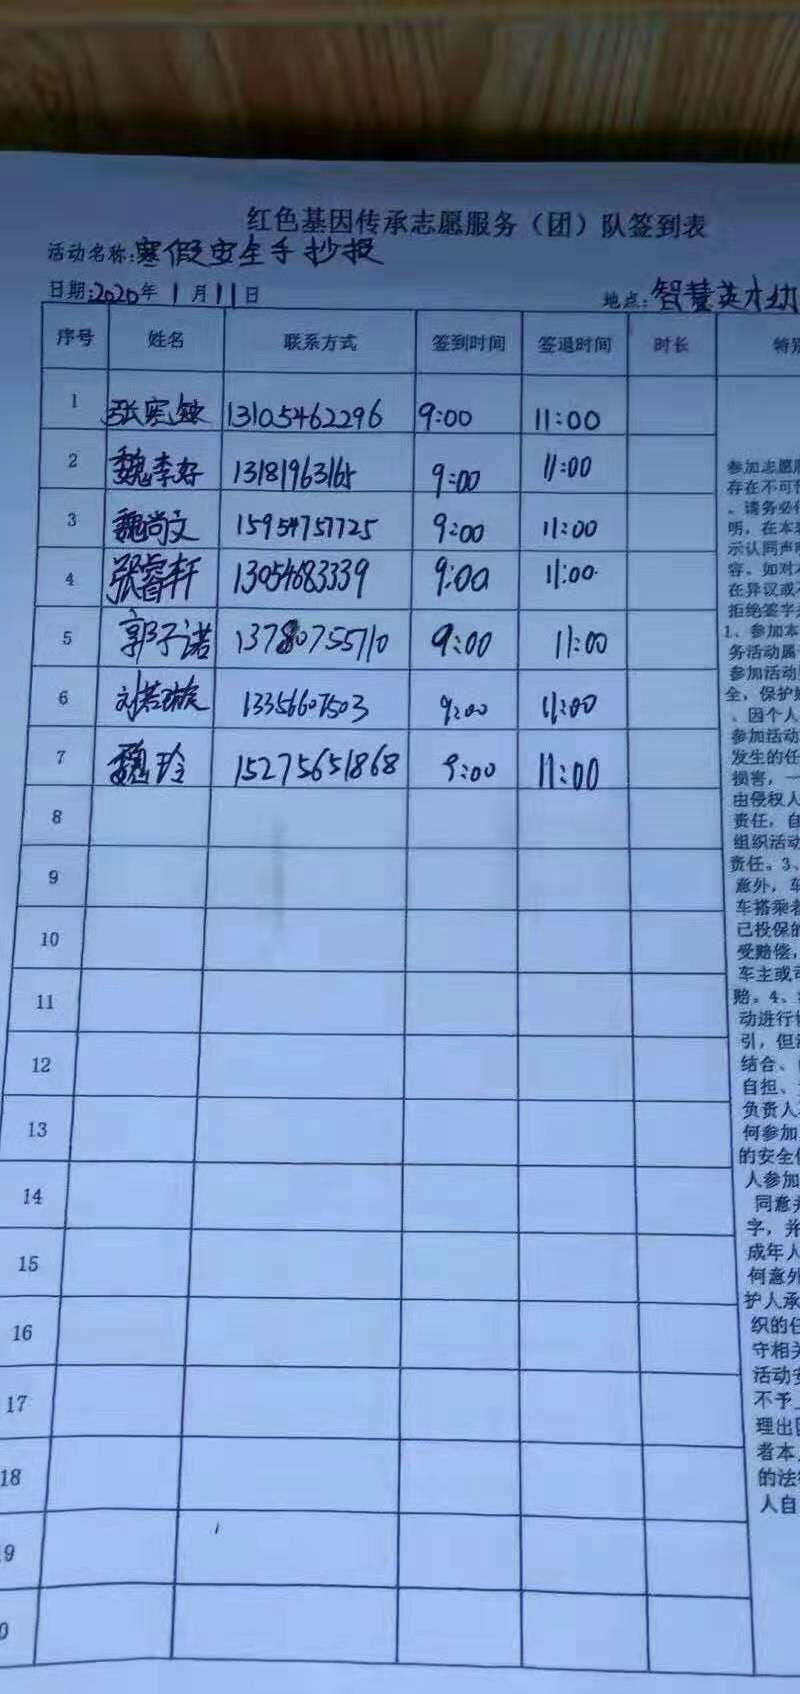 红色基因传承志愿服务（团）队签到表
活动名称:寒假安全手抄报
日期:2020年1月11日 地点:智慧英才幼
序号 姓名 联系方式 签到时间 签退时间 时长 特别
1 张宪铵 13105462296 9:00 11:00
2 魏李好 13181963165 9:00 11:00
3 魏尚文 15954757725 9:00 11:00
4 张睿轩 13054683339 9:00 11:00
5 郭子诺 13780755710 9:00 11:00
6 刘若 13356607503 9:00 11:00
7 魏玲 15275651868 9:00 11:00
8
9
10
11
12
13
14
15
16
17
18
9
0
参加志愿服
存在不可
。请务必
明，在本
示认同声
容。如对
在异议或
拒绝签字
1、参加本
务活动属
参加活动
全，保护
。因个人
参加活动
发生的任
损害，一
由侵权人
责任，自
组织活动
责任。3、
意外，车
车搭乘者
已投保的
受赔偿，
车主或司
赔。4、
动进行
引，但
结合、
自担、
负责人
何参加
的安全
人参加
同意并
字，并
成年人
何意外
护人承
织的任
守相关
活动安
不予
理出
者本人
的法
人自